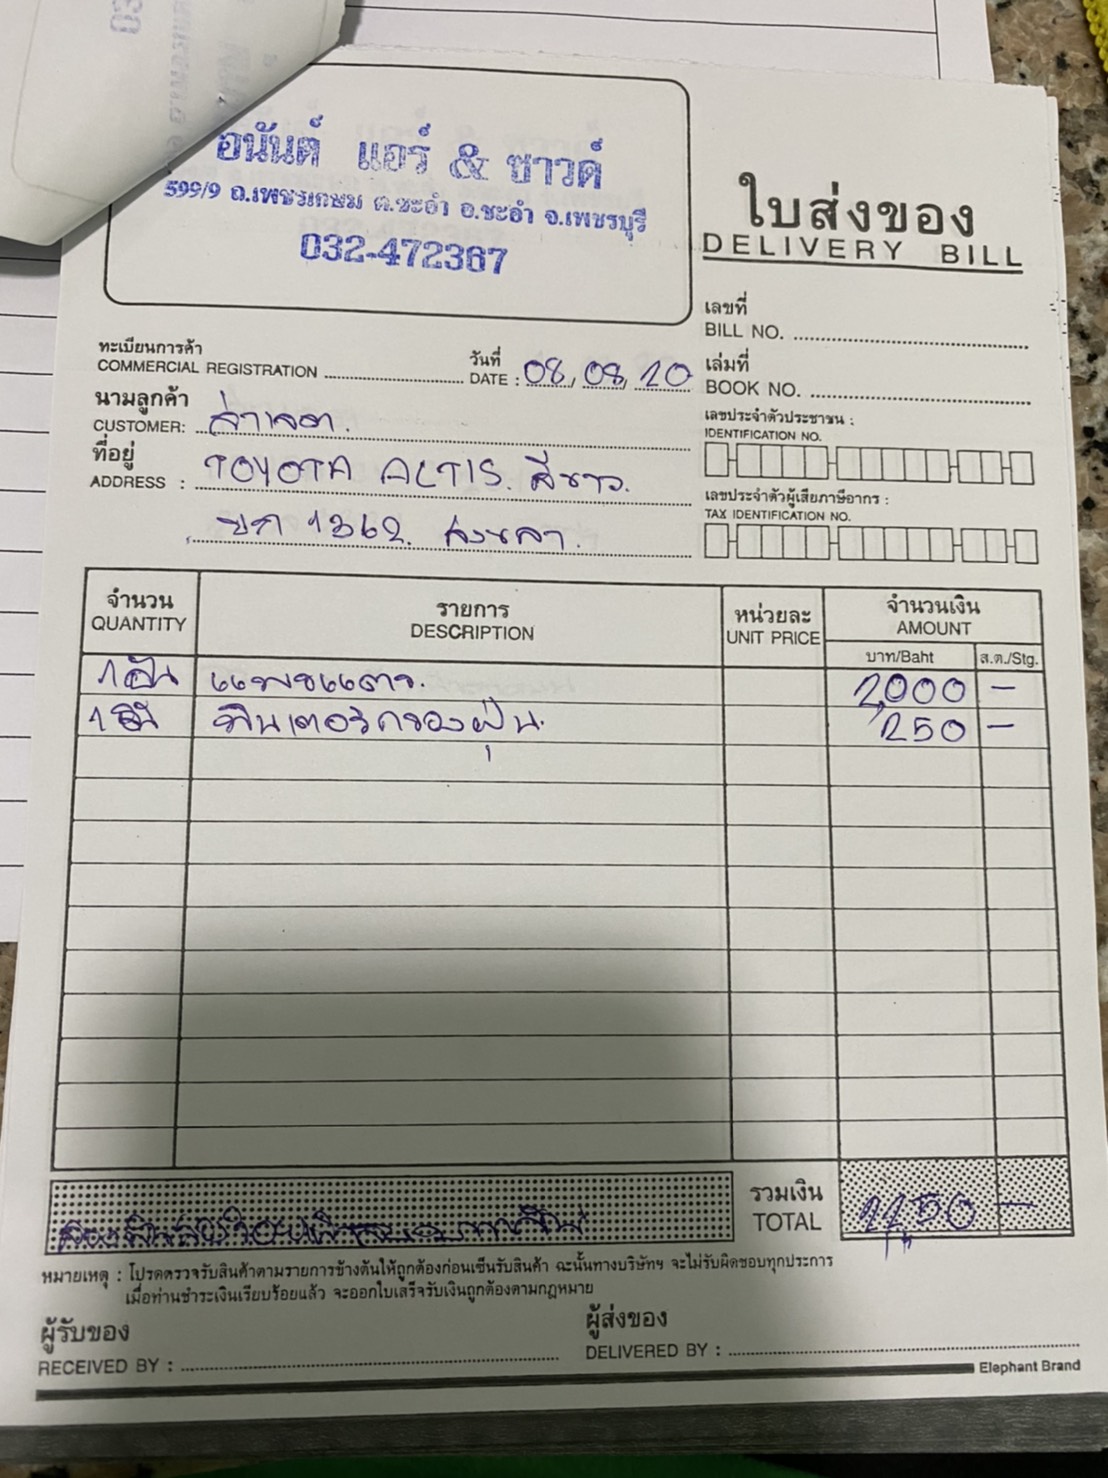 อนันต์ แอร์ & ซาวด์
599/9 ถ.เพชรเกษม ต.ชะอำ อ.ชะอำ จ.เพชรบุรี
032-472367
ใบส่งของ
DELIVERY BILL
เลขที่
BILL NO.
ทะเบียนการค้า
COMMERCIAL REGISTRATION
วันที่
DATE : 08, 08, 20
เล่มที่
BOOK NO.
นามลูกค้า
CUSTOMER:
ที่อยู่
ADDRESS : TOYOTA ALTIS. สีขาว.
1362. สงขลา.
เลขประจำตัวประชาชน :
IDENTIFICATION NO.
เลขประจำตัวผู้เสียภาษีอากร :
TAX IDENTIFICATION NO.
จำนวน รายการ หน่วยละ จำนวนเงิน
QUANTITY DESCRIPTION UNIT PRICE AMOUNT
บาท/Baht ส.ต./Stg.
1 อัน 2,000 -
1 ฟิลเตอร์กรองฝุ่น. 250 -
รวมเงิน
TOTAL 2,250 -
หมายเหตุ : โปรดตรวจรับสินค้าตามรายการข้างต้นให้ถูกต้องก่อนเซ็นรับสินค้า ฉะนั้นทางบริษัทฯ จะไม่รับผิดชอบทุกประการ
เมื่อท่านชำระเงินเรียบร้อยแล้ว จะออกใบเสร็จรับเงินถูกต้องตามกฎหมาย
ผู้รับของ
RECEIVED BY :
ผู้ส่งของ
DELIVERED BY :
Elephant Brand